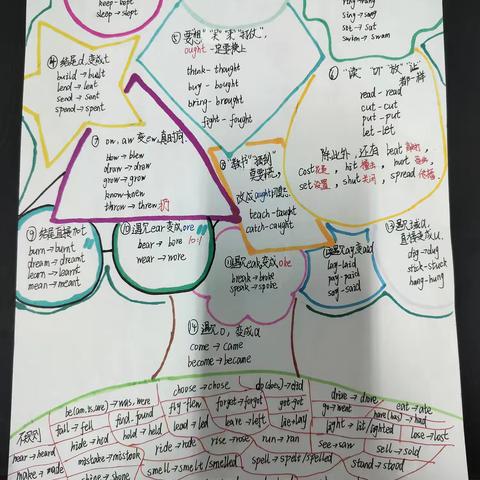 keep - kept
sleep → slept
ring - rang
sing → sang
sit → sat
swim → swam
④ 结尾d变成t
build → built
lend → lent
send → sent
spend → spent
⑤ 要想"买"来"打仗",
ought 一定要换上
think - thought
buy - bought
bring - brought
fight - fought
⑥ "读""切""放""让"
都一样
read - read
cut - cut
put - put
let - let
除此外,还有 beat
cost, hit, hurt
set 设置, shut 关闭, spread 传播.
⑦ ow, aw 变ew,真时尚.
blow → blew
draw → drew
grow → grew
know - knew
throw → threw 扔
⑧ "教书""抓到"
莫要慌,
改成aught
teach - taught
catch - caught
⑨ 结尾直接加t
burn → burnt
dream → dreamt
learn → learnt
mean → meant
⑩ 遇见ear变成ore
bear → bore
wear → wore
⑪ 遇见eak变成oke
break → broke
speak → spoke
⑫ 遇见ay变aid
lay - laid
pay - paid
say - said
⑬
直接变成u.
dig → dug
stick - stuck
hang - hung
⑭ 遇见o,变成a
come → came
become → became
不规则
be(am, is, are) → was, were
choose → chose
do(does) → did
drive → drove
eat → ate
fall → fell
find - found
fly - flew
forget → forgot
get - got
go → went
have(has) → had
hear → heard
hide → hid
hold → held
lead → led
leave → left
lie → lay
light → lit/lighted
lose → lost
make → made
mistake → mistook
ride → rode
rise → rose
run → ran
see → saw
sell → sold
shine → shone
smell → smelt/smelled
spell → spelt/spelled
stand → stood